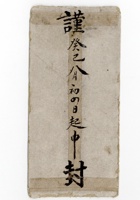 謹
癸巳八月初四日起申
封